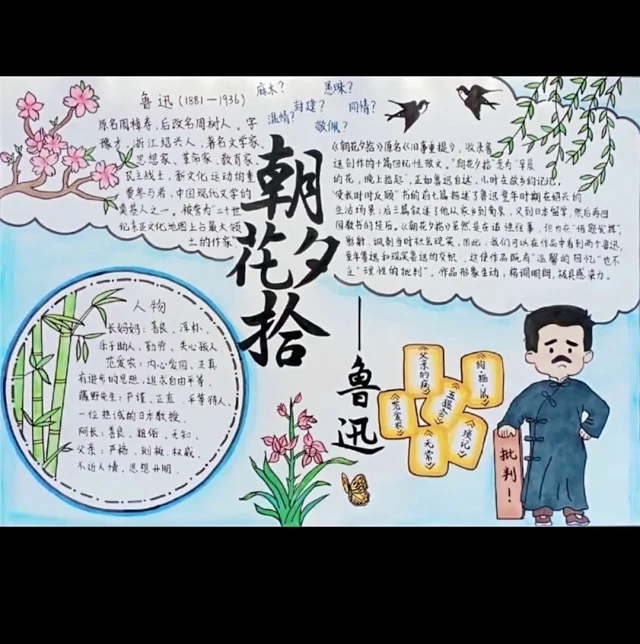 鲁迅(1881—1936)
原名周樟寿,后改名周树人。字
豫才,浙江绍兴人,著名文学家、
思想家、革命家、教育家、
民主战士,新文化运动的重
要参与者,中国现代文学的
奠基人之一。被誉为"二十世
纪东亚文化地图上占最大领
土的作家"
麻木?
愚昧?
封建?
同情?
温情?
敬佩?
《朝花夕拾》原名《旧事重提》,收录鲁
迅创作的十篇回忆性散文。"朝花夕拾"意为"早晨
的花,晚上拾起",正如鲁迅自述,儿时在故乡的记忆,
"使我时时反顾"书的前七篇
生活场景;后三篇叙述了他从家乡到南京,又到日本留学,然后再回
国教书的经历。《朝花夕拾》虽然是在追忆往事,但亦在"借题发挥",
影射、讽刺当时社会现实。因此,我们可以在作品中看到两个鲁迅,
童年鲁迅和现实鲁迅的交织,这使作品既有"温馨的回忆"也不
乏"理性的批判"。作品形象生动,格调明朗,极具感染力。
朝花夕拾
——鲁迅
人物
长妈妈:善良、淳朴、
乐于助人、勤劳、关心孩人
范爱农:内心爱国、正真
有进步的思想、追求自由平等。
藤野先生:严谨、正直、平等待人、
一位热诚的日本教授。
阿长:善良、粗俗、无知。
父亲:严格、刻板、权威
不近人情、思想开明。
《父亲的病》
《狗·猫·鼠》
《五猖会》
《范爱农》
《无常》
《琐记》
批判!